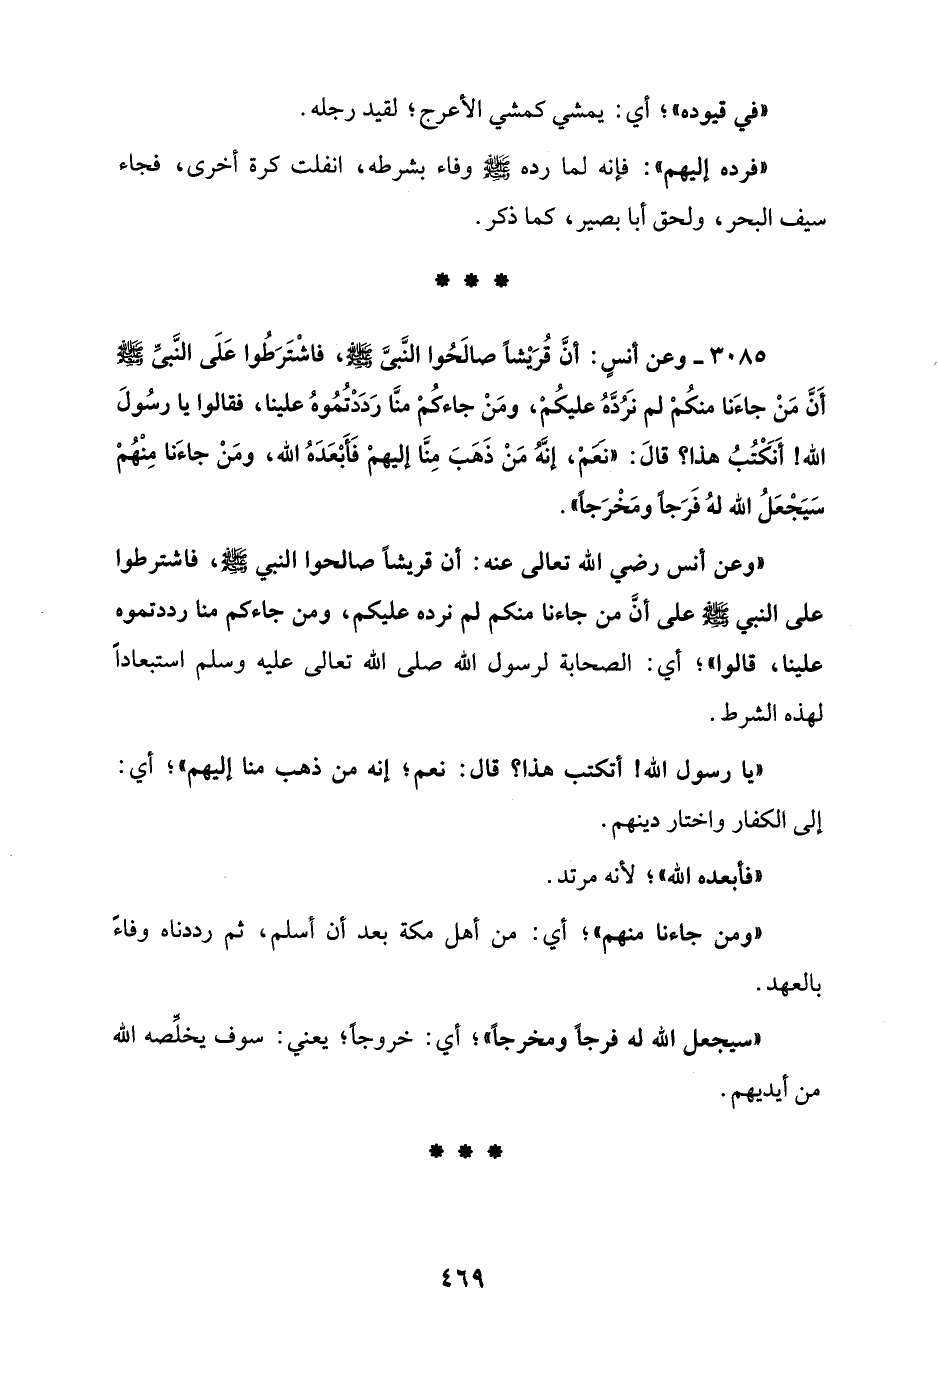 «في قيوده»؛ أي: يمشي كمشي الأعرج؛ لقيد رجله.
«فرده إليهم»: فإنه لما رده ﷺ وفاء بشرطه، انفلت كرة أخرى، فجاء
سيف البحر، ولحق أبا بصير، كما ذكر.
* * *
٣٠٨٥ - وعن أنسٍ: أنَّ قُرَيْشاً صالَحُوا النَّبيَّ ﷺ، فاشْتَرَطُوا عَلَى النَّبيِّ ﷺ
أَنَّ مَنْ جاءَنا منكُمْ لم نَرُدَّهُ عليكُمْ، ومَنْ جاءكُمْ منَّا رَدَدْتُمُوهُ علينا، فقالوا يا رسُولَ
الله! أَنَكْتُبُ هذا؟ قالَ: «نعَمْ، إنَّهُ مَنْ ذَهَبَ مِنَّا إليهِمْ فَأَبْعَدَهُ الله، ومَنْ جاءَنا مِنْهُمْ
سَيَجْعَلُ الله لهُ فَرَجاً ومَخْرَجاً».
«وعن أنس رضي الله تعالى عنه: أن قريشاً صالحوا النبي ﷺ، فاشترطوا
على النبي ﷺ على أنَّ من جاءنا منكم لم نرده عليكم، ومن جاءكم منا رددتموه
علينا، قالوا»؛ أي: الصحابة لرسول الله صلى الله تعالى عليه وسلم استبعاداً
لهذه الشرط.
«يا رسول الله! أتكتب هذا؟ قال: نعم؛ إنه من ذهب منا إليهم»؛ أي:
إلى الكفار واختار دينهم.
«فأبعده الله»؛ لأنه مرتد.
«ومن جاءنا منهم»؛ أي: من أهل مكة بعد أن أسلم، ثم رددناه وفاءً
بالعهد.
«سيجعل الله له فرجاً ومخرجاً»؛ أي: خروجاً؛ يعني: سوف يخلِّصه الله
من أيديهم.
* * *
٤٦٩